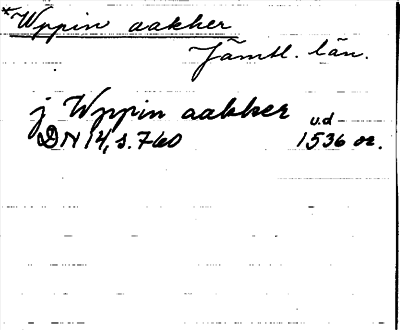 *Wppin aakker
Jämtl. län.
j Wppin aakker u.d
DN 14, s. 760 1536 or.